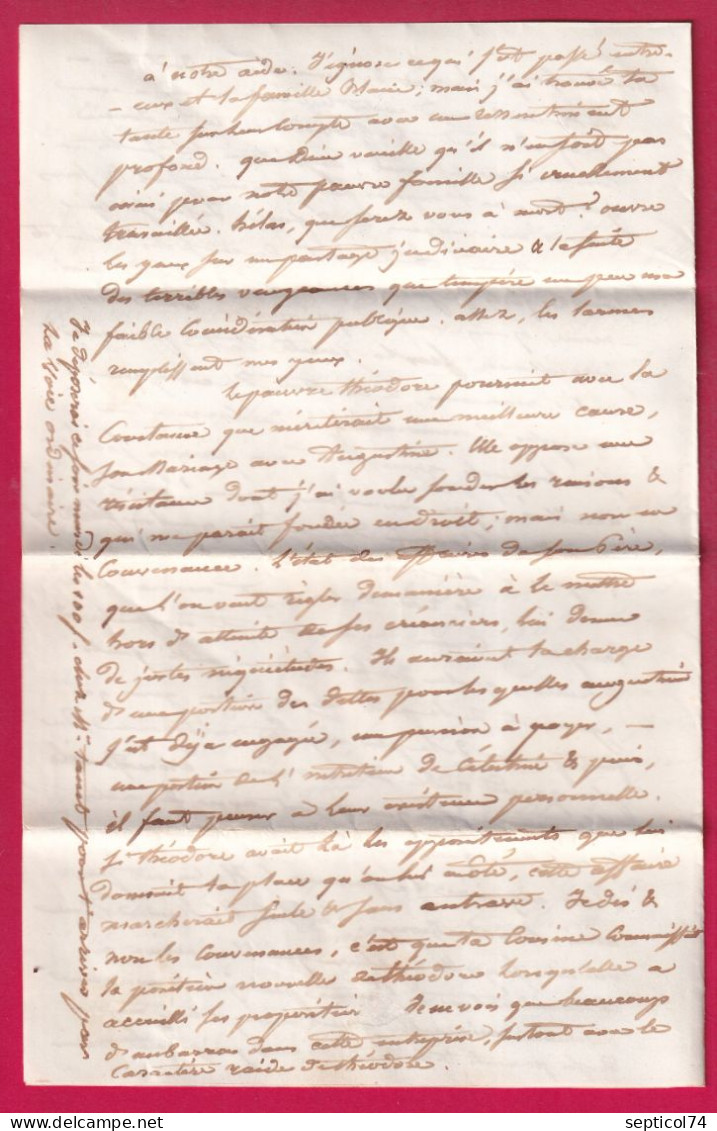 à notre aide. J'ignore ce qui s'est passé entre
eux et la famille Marie; mais j'ai trouvé ta
tante sur leur compte avec un ressentiment
profond. que Dieu veuille qu'il n'en soit pas
ainsi pour notre pauvre famille si cruellement
travaillée. hélas, que ferez vous à mort? ouvre
les yeux sur un partage judiciaire & la suite
des terribles vengeances que tempère un peu ma
faible considération publique. assez, les larmes
remplissent mes yeux.
le pauvre théodore poursuit avec la
Constance que mériterait une meilleure cause,
son Mariage avec Augustine. Elle oppose une
résistance dont j'ai voulu sonder les raisons &
qui me parait fondée en droit; mais non en
Convenances. l'état des affaires de son Père,
que l'on veut régler de manière à le mettre
hors d'atteinte de ses créanciers, lui donne
de justes inquiétudes. Ils auraient la charge
d'une portion des dettes pour lesquelles augustine
s'est déjà engagée, une pension à payer,
une portion de l' entretien de Célestine & puis,
il faut penser à leur existence personnelle.
Si théodore avait là les appointements que lui
donnait la place qu'on lui a ôté, cette affaire
marcherait seule & sans entrave. Je dis &
non les Convenances, c'est que ta Cousine Connaissait
la position nouvelle de théodore lorsqu'elle a
accueilli ses propositions Je ne vois que beaucoup
d'embarras dans cette entreprise, surtout avec le
Caractère raide de théodore.
Je déposerai ce soir mardi les 100 f. chez Mr
pour t'arriver par
la voie ordinaire.
septicol74